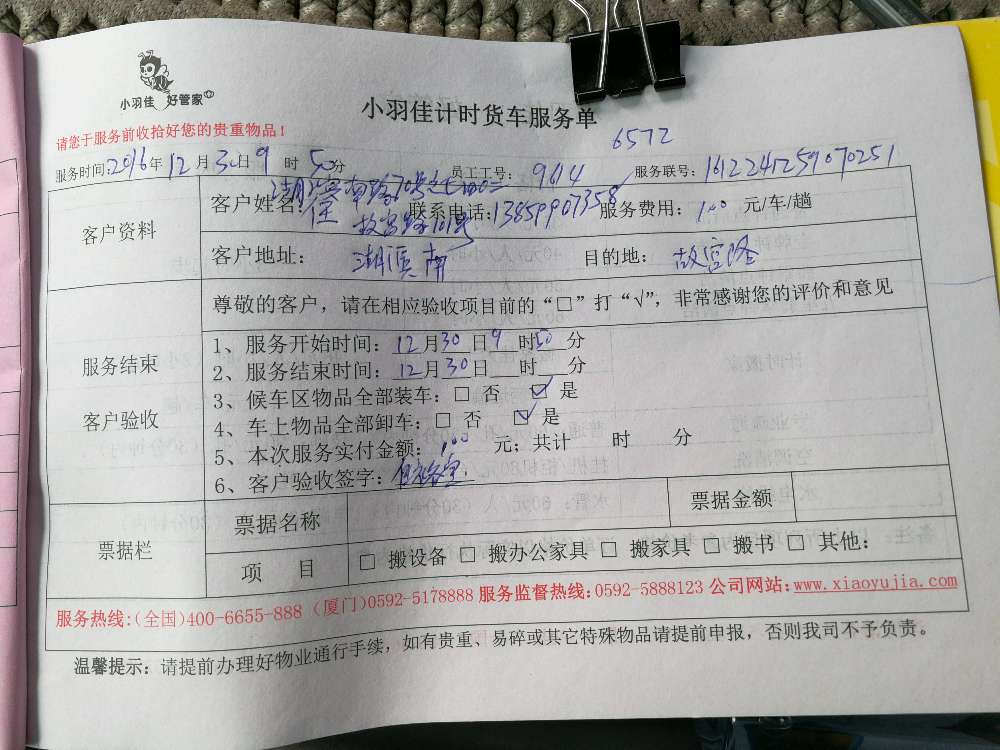 小羽佳 好管家
小羽佳计时货车服务单
请您于服务前收拾好您的贵重物品！
6572
服务时间:2016年12月30日9时50分 员工工号: 9614 服务联号: 1612241259070251
客户资料
客户姓名: 联系电话:13859907358 服务费用: 100 元/车/趟
客户地址: 湖滨南 目的地: 故宫路
服务结束
客户验收
尊敬的客户，请在相应验收项目前的“□”打“√”，非常感谢您的评价和意见
1、服务开始时间: 12月30日9时50分
2、服务结束时间: 12月30日 时 分
3、候车区物品全部装车: □ 否 ☑ 是
4、车上物品全部卸车: □ 否 ☑ 是
5、本次服务实付金额: 100 元; 共计 时 分
6、客户验收签字:
票据栏
票据名称 票据金额
项 目 □ 搬设备 □ 搬办公家具 □ 搬家具 □ 搬书 □ 其他:
服务热线:(全国)400-6655-888 (厦门)0592-5178888 服务监督热线:0592-5888123 公司网站:www.xiaoyujia.com
温馨提示: 请提前办理好物业通行手续，如有贵重、易碎或其它特殊物品请提前申报，否则我司不予负责。